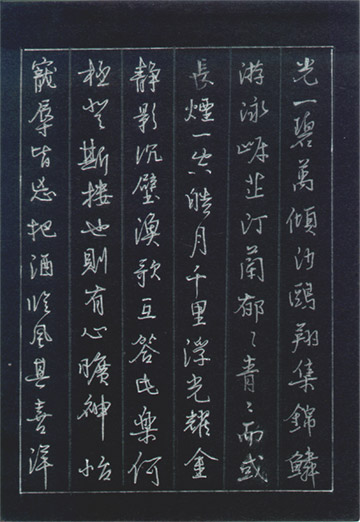 光一碧萬傾沙鷗翔集錦鱗
游泳岸芷汀蘭郁〻青〻而或
長煙一空皓月千里浮光耀金
静影沉璧漁歌互答此樂何
極登斯樓也則有心曠神怡
寵辱皆忘把酒臨風其喜洋